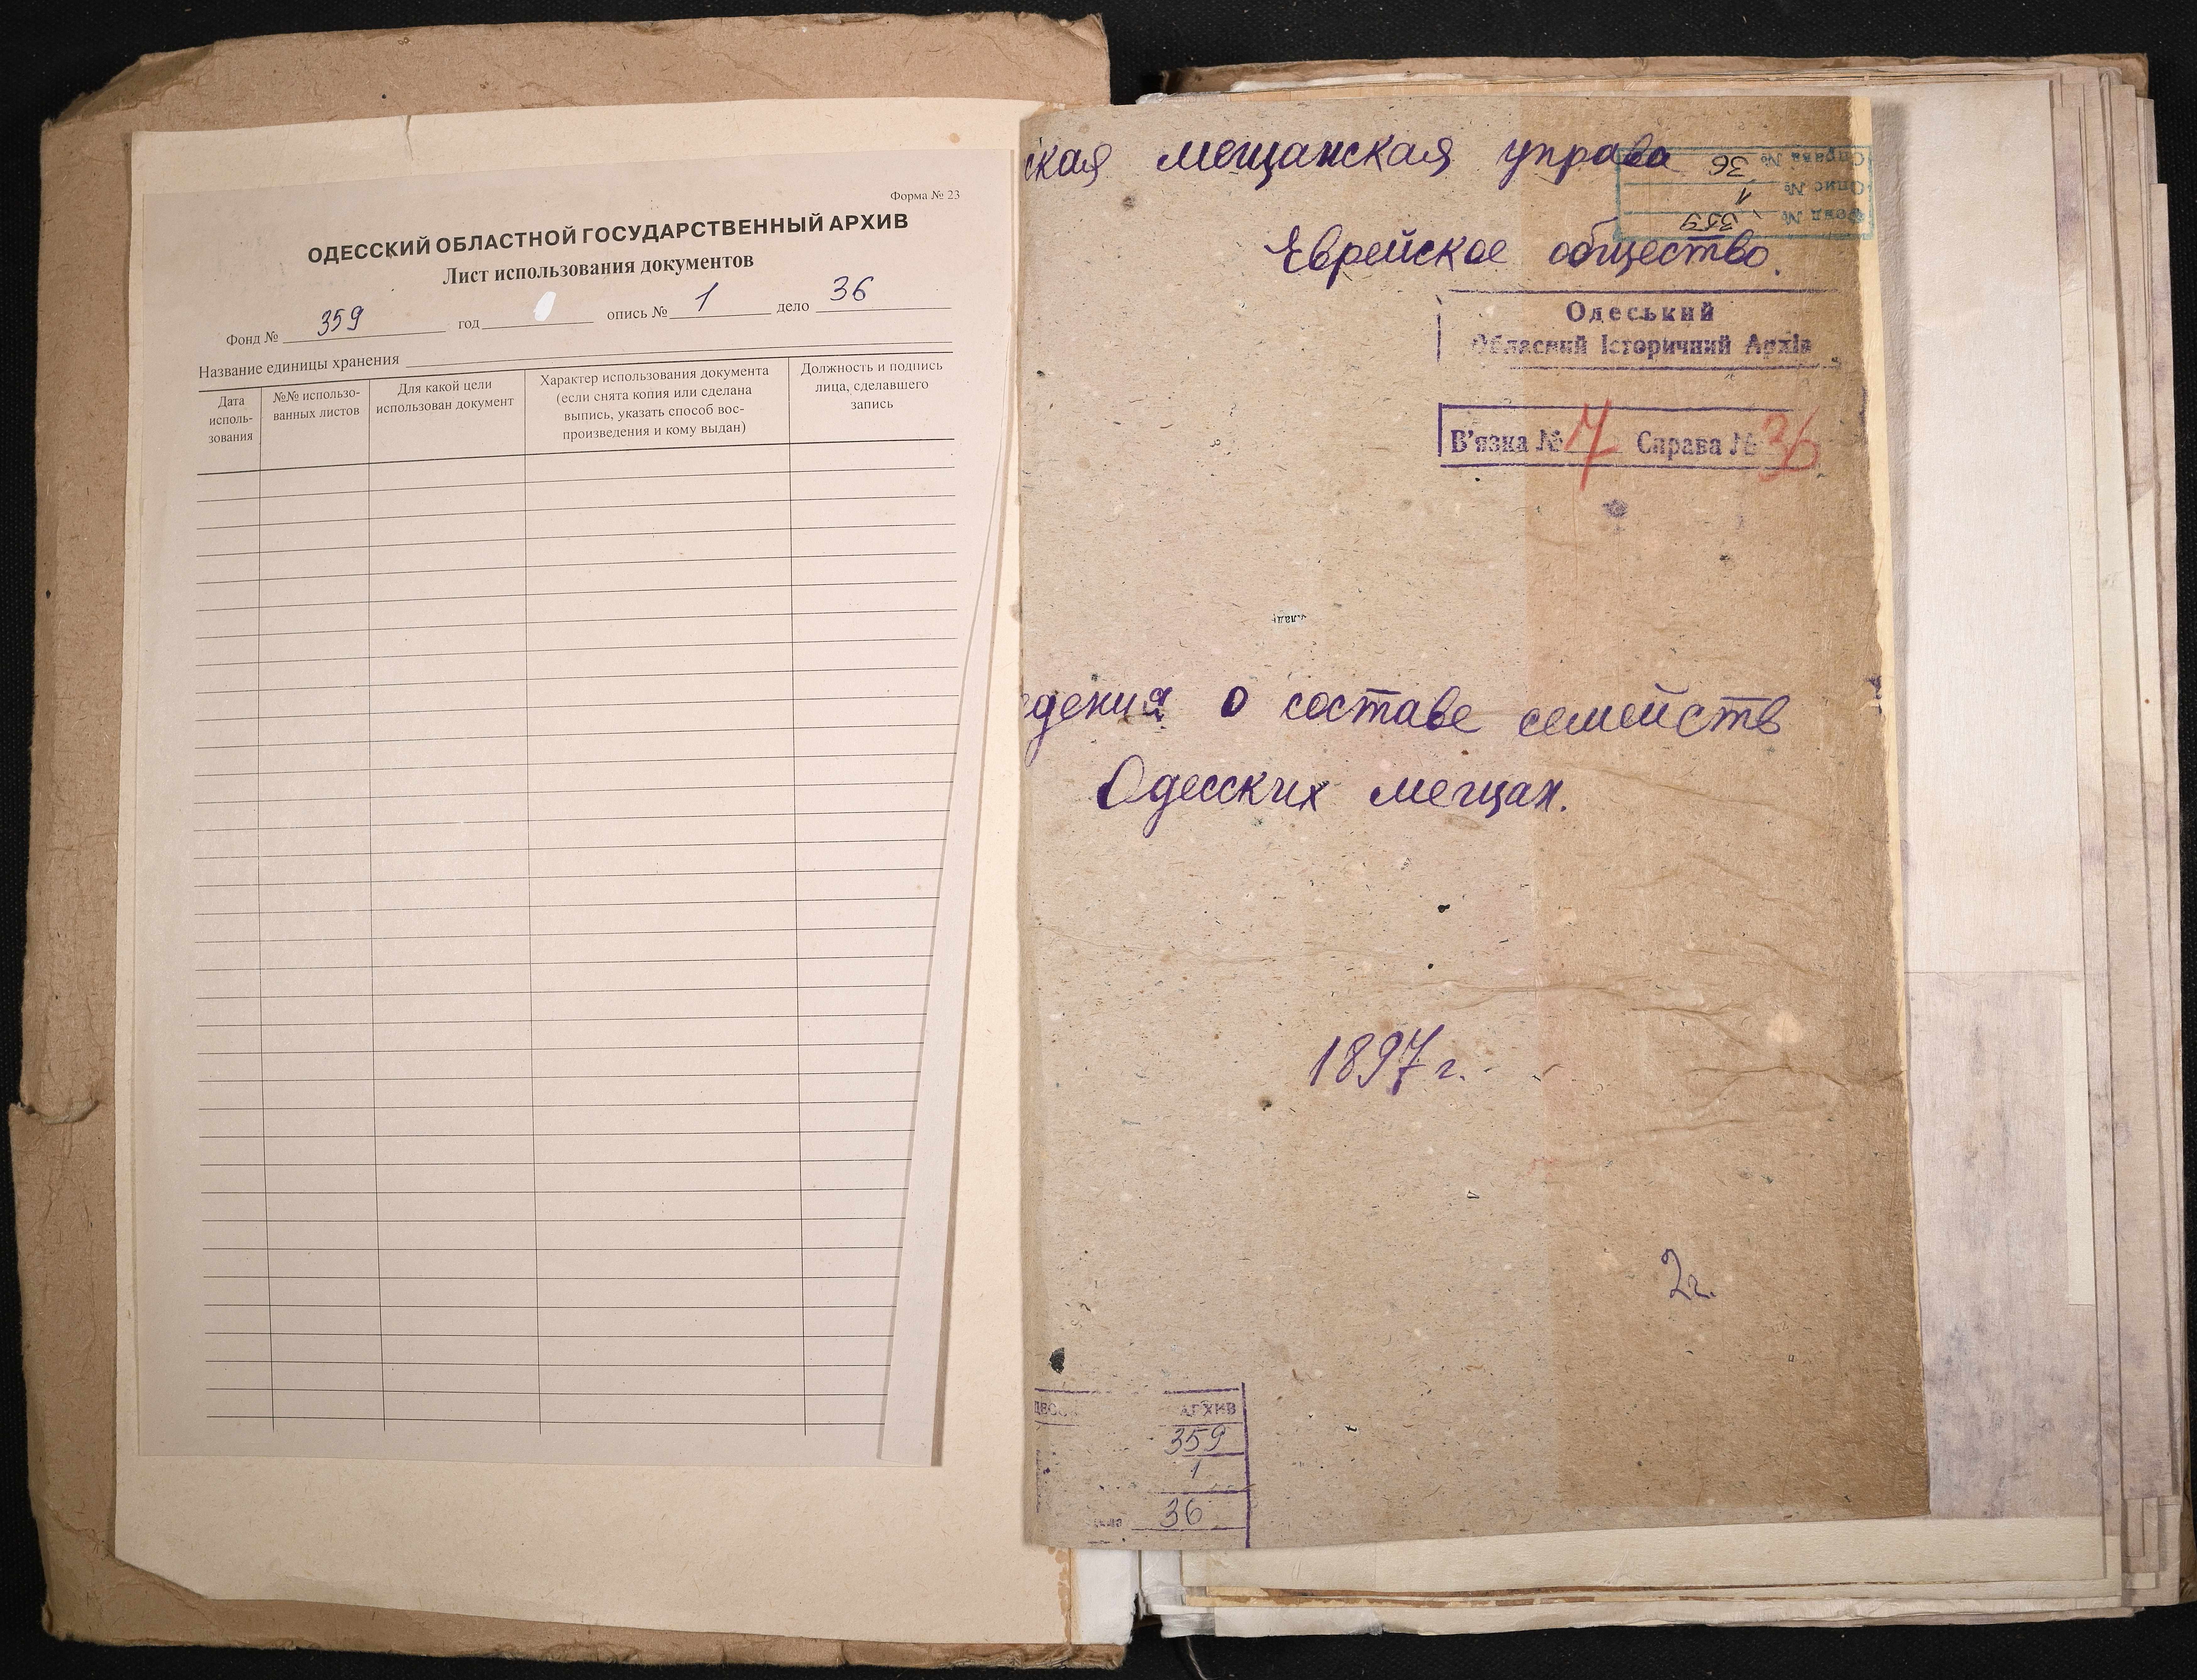 Форма № 23
ОДЕССКИЙ ОБЛАСТНОЙ ГОСУДАРСТВЕННЫЙ АРХИВ
Лист использования документов
Фонд № 359 год опись № 1 дело 36
Название единицы хранения
Дата исполь-зования
№№ использо-ванных листов
Для какой цели использован документ
Характер использования документа (если снята копия или сделана выпись, указать способ вос-произведения и кому выдан)
Должность и подпись лица, сделавшего запись
ская мещанская управа
Справа № 36
Опис № 1
Фонд № 359
Еврейское общество.
Одеський
Обласний Історичний Архів
В'язка № 7 Справа № 36
едения о составе семейств
Одесских мещан.
1897 г.
2г.
АРХИВ
359
1
36